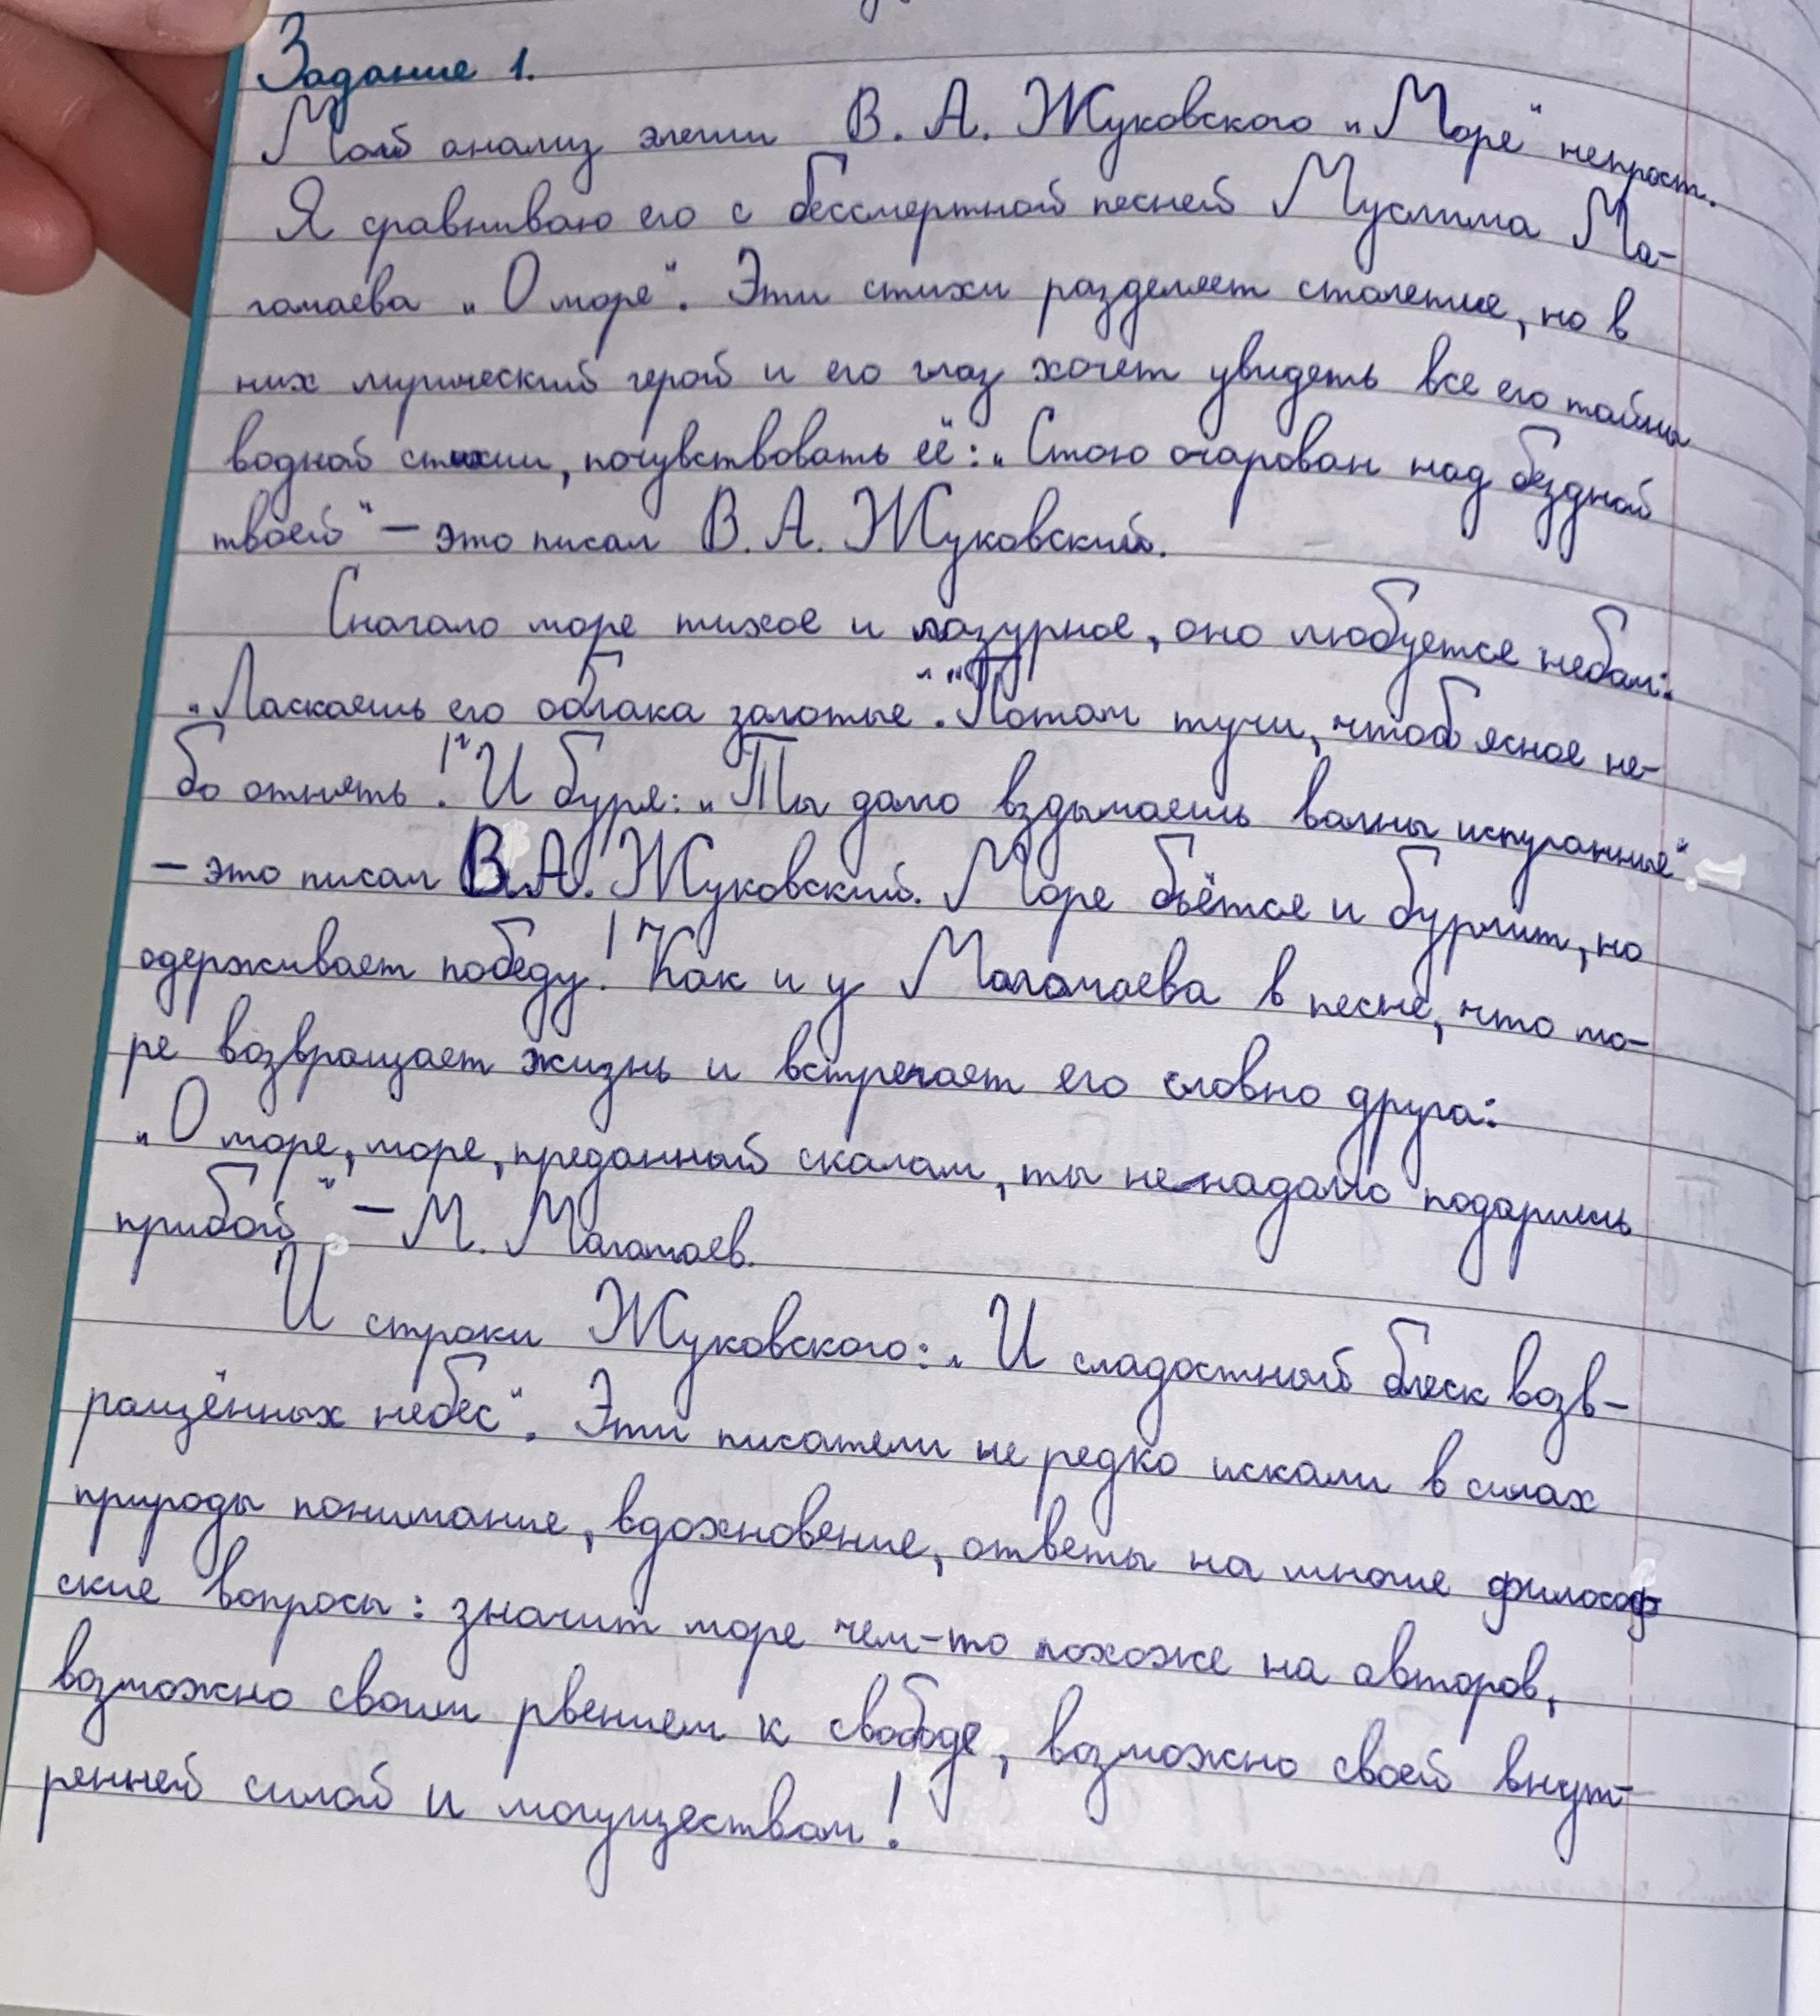 Задание 1.
Мой анализ элегии В. А. Жуковского „Море“ непрост.
Я сравниваю его с бессмертной песней Муслима Ма-
гомаева „О море“. Эти стихи разделяет столетие, но в
них лирический герой и его глаз хочет увидеть все его тайны
водной стихии, почувствовать её: „Стою очарован над бездной
твоей“ – это писал В. А. Жуковский.
Сначало море тихое и лазурное, оно любуется небом:
„Ласкаешь его облака золотые“. „Потом тучи, чтоб ясное не-
бо отнять!“ И буря: „Ты долго вздымаешь волны испуганные“.
– это писал В.А. Жуковский. Море бьётся и бурлит, но
одерживает победу! Как и у Магомаева в песне, что мо-
ре возвращает жизнь и встречает его словно друга:
„О море, море, преданный скалам, ты ненадолго подаришь
прибой“ – М. Магомаев.
И строки Жуковского: „И сладостный блеск возв-
ращённых небес“. Эти писатели не редко искали в силах
природы понимание, вдохновение, ответы на многие философ
ские вопросы: значит море чем-то похоже на авторов,
возможно своим рвением к свободе, возможно своей внут-
ренней силой и могуществом!